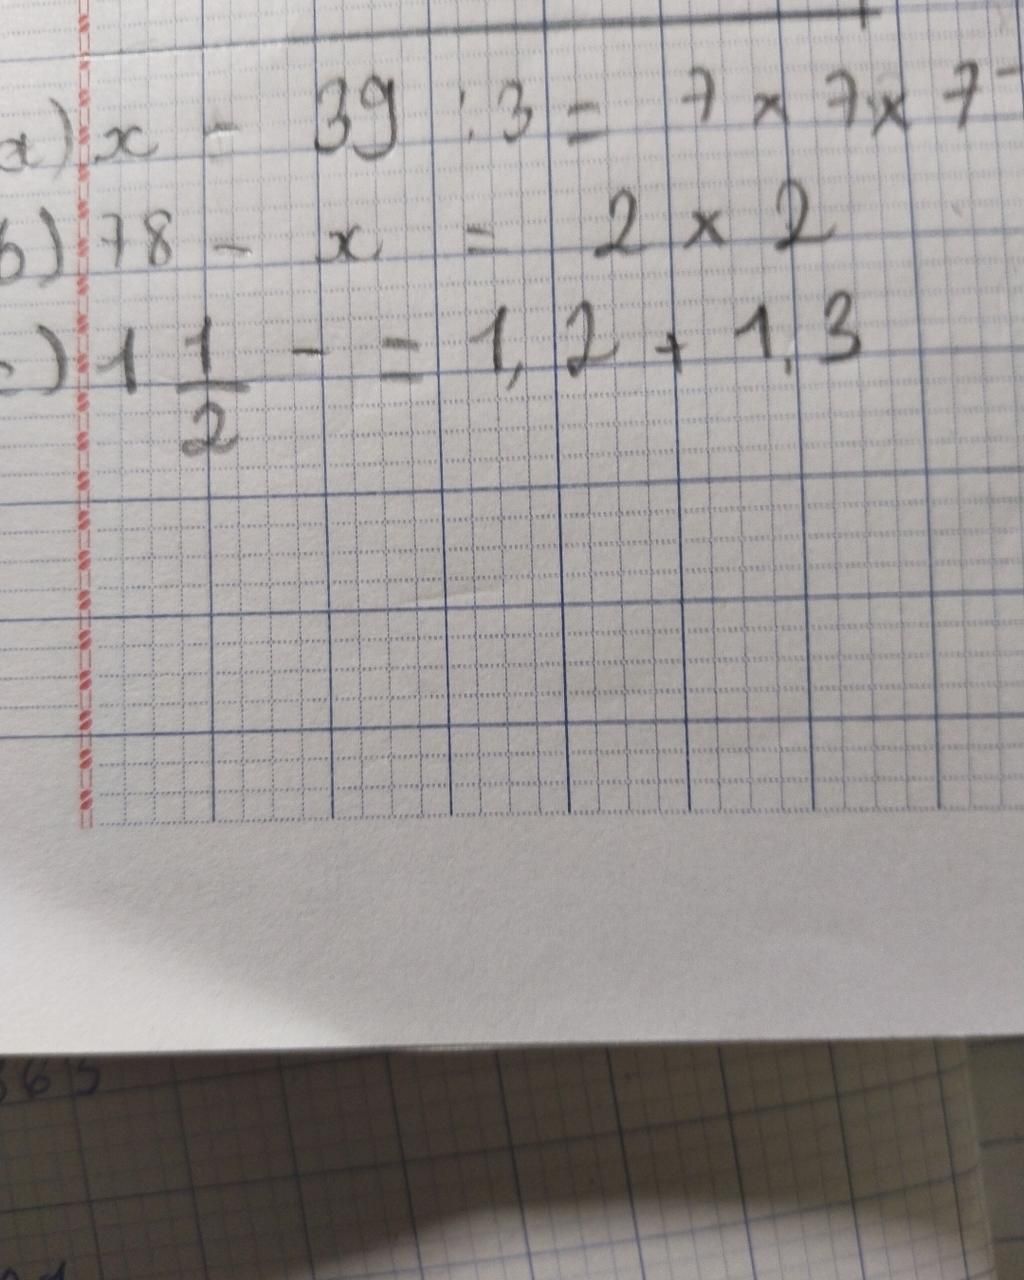 a) x - 39 : 3 = 7 x 7 x 7
b) 78 - x = 2 x 2
c) 1 1/2 - = 1,2 + 1,3
365